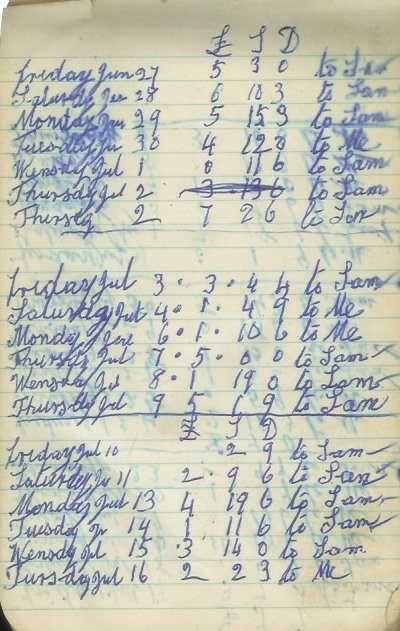 £ S D
Friday Jun 27 5 3 0 to Sam
Saturdy Jun 28 6 10 3 to Sam
Monday Jun 29 5 15 3 to Sam
Tuesday Ju 30 4 12 0 to Me
Wensdy Jul 1 0 11 6 to Sam
Thursday Jul 2 3 13 6 to Sam
Thursdy 2 7 2 6 to Sam
Friday Jul 3 · 3 · 4 4 to Sam
Saturday Jul 4 · 1 · 4 9 to Me
Monday 6 · 1 · 10 6 to Me
Thursdy Jul 7 · 5 · 0 0 to Sam
Wensday Jul 8 · 1 19 0 to Sam
Thursdy Jul 9 5 1 9 to Sam
£ S D
Friday Jul 10 · 2 9 to Sam
Saturday Ju 11 2 · 9 6 to Sam
Monday Jul 13 4 19 6 to Sam
Tuesday Ju 14 1 11 6 to Sam
Wensdy Jul 15 · 3 14 0 to Sam
Tursday Jul 16 2 2 3 to Me